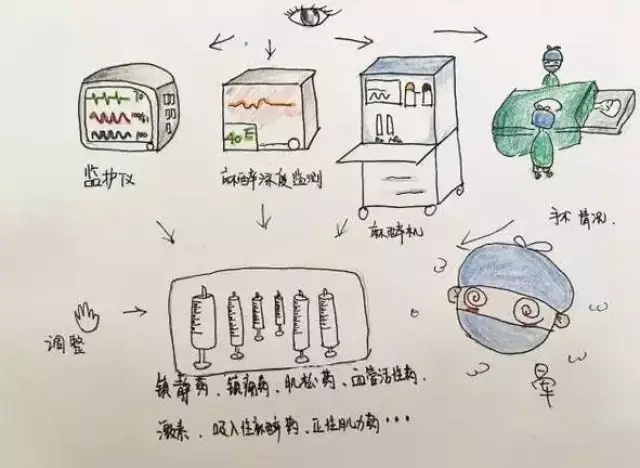 70
100
40
监护仪
麻醉深度监测
麻醉机
手术情况.
调整
晕
镇静药、镇痛药、肌松药、血管活性药、
激素、吸入性麻醉药、正性肌力药…